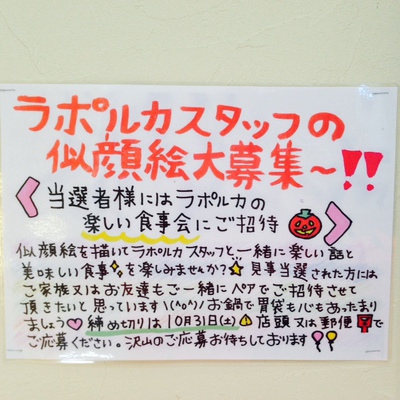 ラポルカスタッフの
似顔絵大募集～!!
当選者様にはラポルカの
楽しい食事会にご招待
似顔絵を描いてラポルカスタッフと一緒に楽しい話と
美味しい食事を楽しみませんか?見事当選された方には
ご家族又はお友達もご一緒にペアでご招待させて
頂きたいと思っています\(^o^)/お鍋で胃袋も心もあったまり
ましょう♡締め切りは10月31日(土)店頭又は郵便で
ご応募ください。沢山のご応募お待ちしております